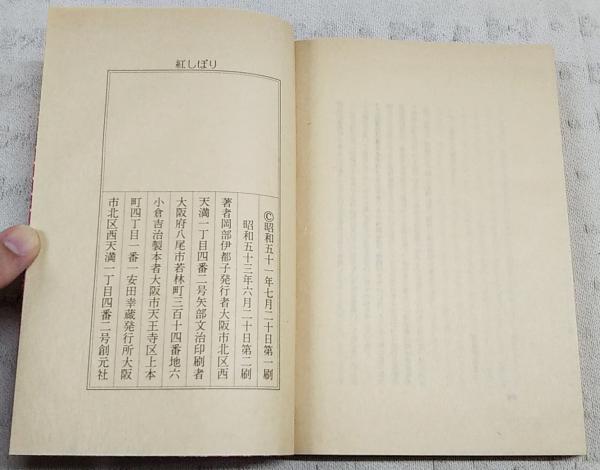 紅しぼり
©昭和五十一年七月二十日第一刷
昭和五十三年六月二十日第二刷
著者岡部伊都子発行者大阪市北区西
天満一丁目四番二号矢部文治印刷者
大阪府八尾市若林町三百十四番地六
小倉吉治製本者大阪市天王寺区上本
町四丁目一番一安田幸蔵発行所大阪
市北区西天満一丁目四番二号創元社